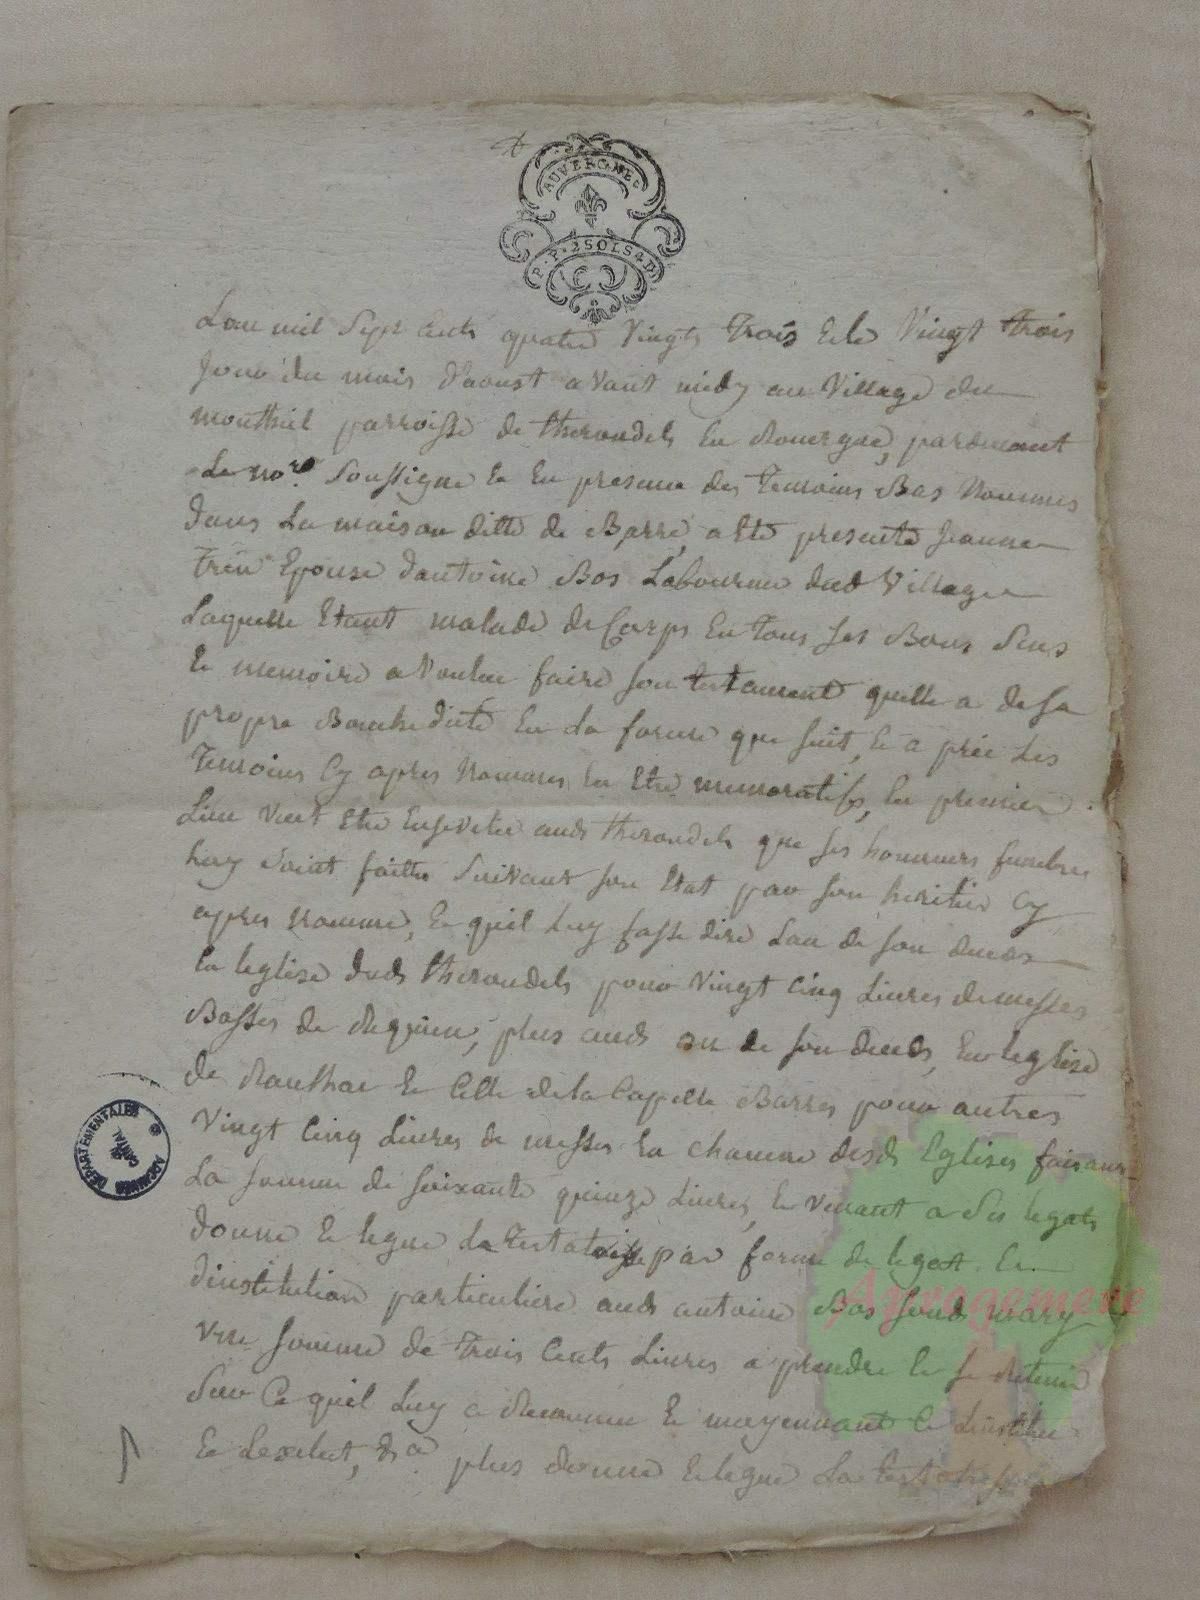 AUVERGNE
P.P. 2 SOLS 4 D
Lan mil Sept Cents quatre Vingts Trois & le Vingt trois
Jour du mois d'aoust avant midy au Village du
monthiel parroisse de therondels En Rouergue, pardevant
Le no.re Soussigne & En presence des Temoins Bas Nommes
dans La maison ditte de Barre, a Eté presente Jeanne
Epouse dantoine Bos Laboureur dud Village
Laquelle Etant malade de Corps En Tous ses Bons Sens
& memoire a Voulue faire son testament quelle a de sa
propre Bouche dicté En La forme que suit, & a priée Les
Temoins Cy apres Nommes En Etre memoratifs, En premier
Lieu Veut Etre Ensevelie aud therondels que ses honneurs funebres
Luy Soint faittes Suivant son Etat par son heritier Cy
apres nommé, & quil Luy fasse dire Lan de son deces
En leglise dud therondels pour Vingt Cinq Livres de messes
Basses de Requiem, plus aud an de son deces, En leglise
de Raulhac & Celle de la Capelle Barres pour autres
Vingt Cinq Livres de messes En chacune desd Eglises faisant
La somme de soixante quinze Livres, & Venant a Ses legats
donne & legue La Testatrisse par forme de legat &
dinstitution particuliere aud antoine Bos sond mary
Vne somme de Trois Cents Livres a prendre & se Retenir
Sur Ce quil Luy a Reconnue & moyennant Ce Linstitue
& Lexclut, & a plus donne & legue La testatrisse
ARCHIVES DEPARTEMENTALES
CANTAL
Aprogemere